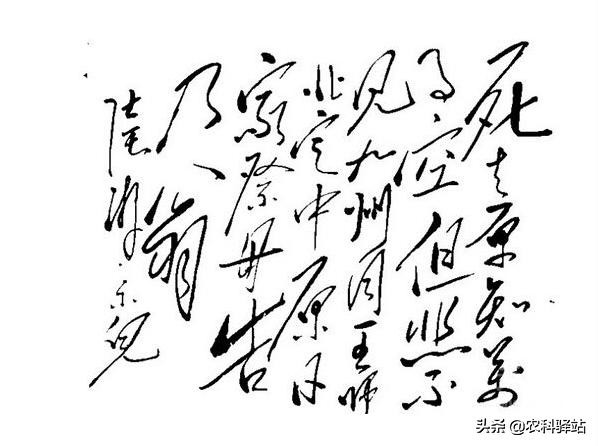 死去原知萬
事空但悲不
见九州同王师
北定中原日
家祭毋告
乃翁
陸游 示兒
头条 @农科驿站